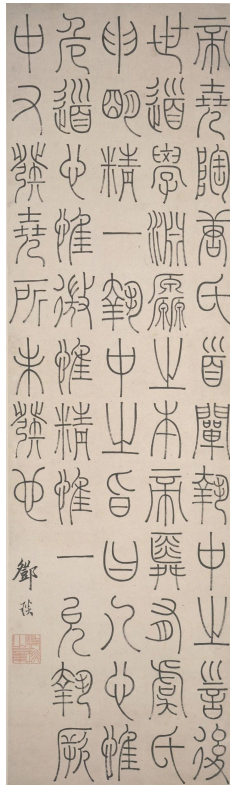 帝堯陶唐氏首闡執中之言後
世道學淵源之本帝舜有虞氏
申明精一執中之旨曰人心惟
危道心惟微惟精惟一允執厥
中又發堯所未發也
鄧琰